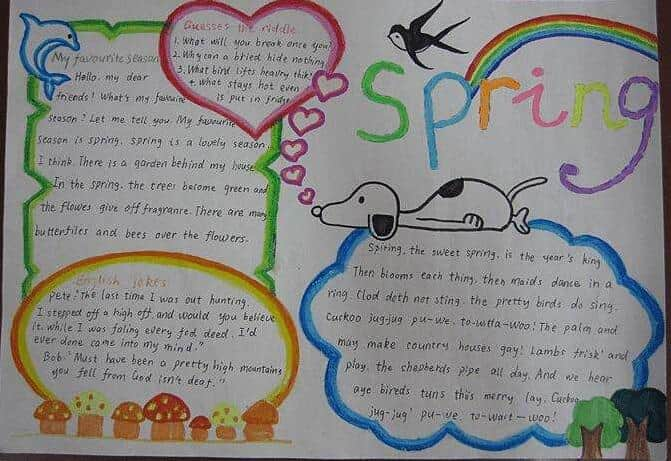 Spring
My favourite season
Hallo, my dear
friends! What's my favourite
season? Let me tell you. My favourite
season is spring. spring is a lovely season.
I think. There is a garden behind my house
In the spring. the trees become green and
the flowes give off fragranre. There are many
butterfiles and bees over the flowers.
Guesses the riddle
1. What will you break once you
2. Why can a bried hide nothing
3. What bird lifts heavry thik
4. what stays hot even
is put in fridge
English jokes
Pete: "The last time I was out hunting.
I stepped off a high off. and would you believe
it. while I was faling every fed deed. I'd
ever done came into my mind."
Bob. "Must have been a pretty high mountain;
you fell from God isn't deaf."
Spiring, the sweet spring. is the year's king
Then blooms each thing. then maids dance in a
ring. Clod doth not sting. the pretty birds do sing.
Cuckoo jug-jug pu-we. to-witta-woo! The palm and
may make country houses gay! Lambs frisk and
play. the shepherds pipe all day. And we hear
aye bireds tuns this merry lay. Cuckoo
jug-jug' pu-we. to-wait-woo!